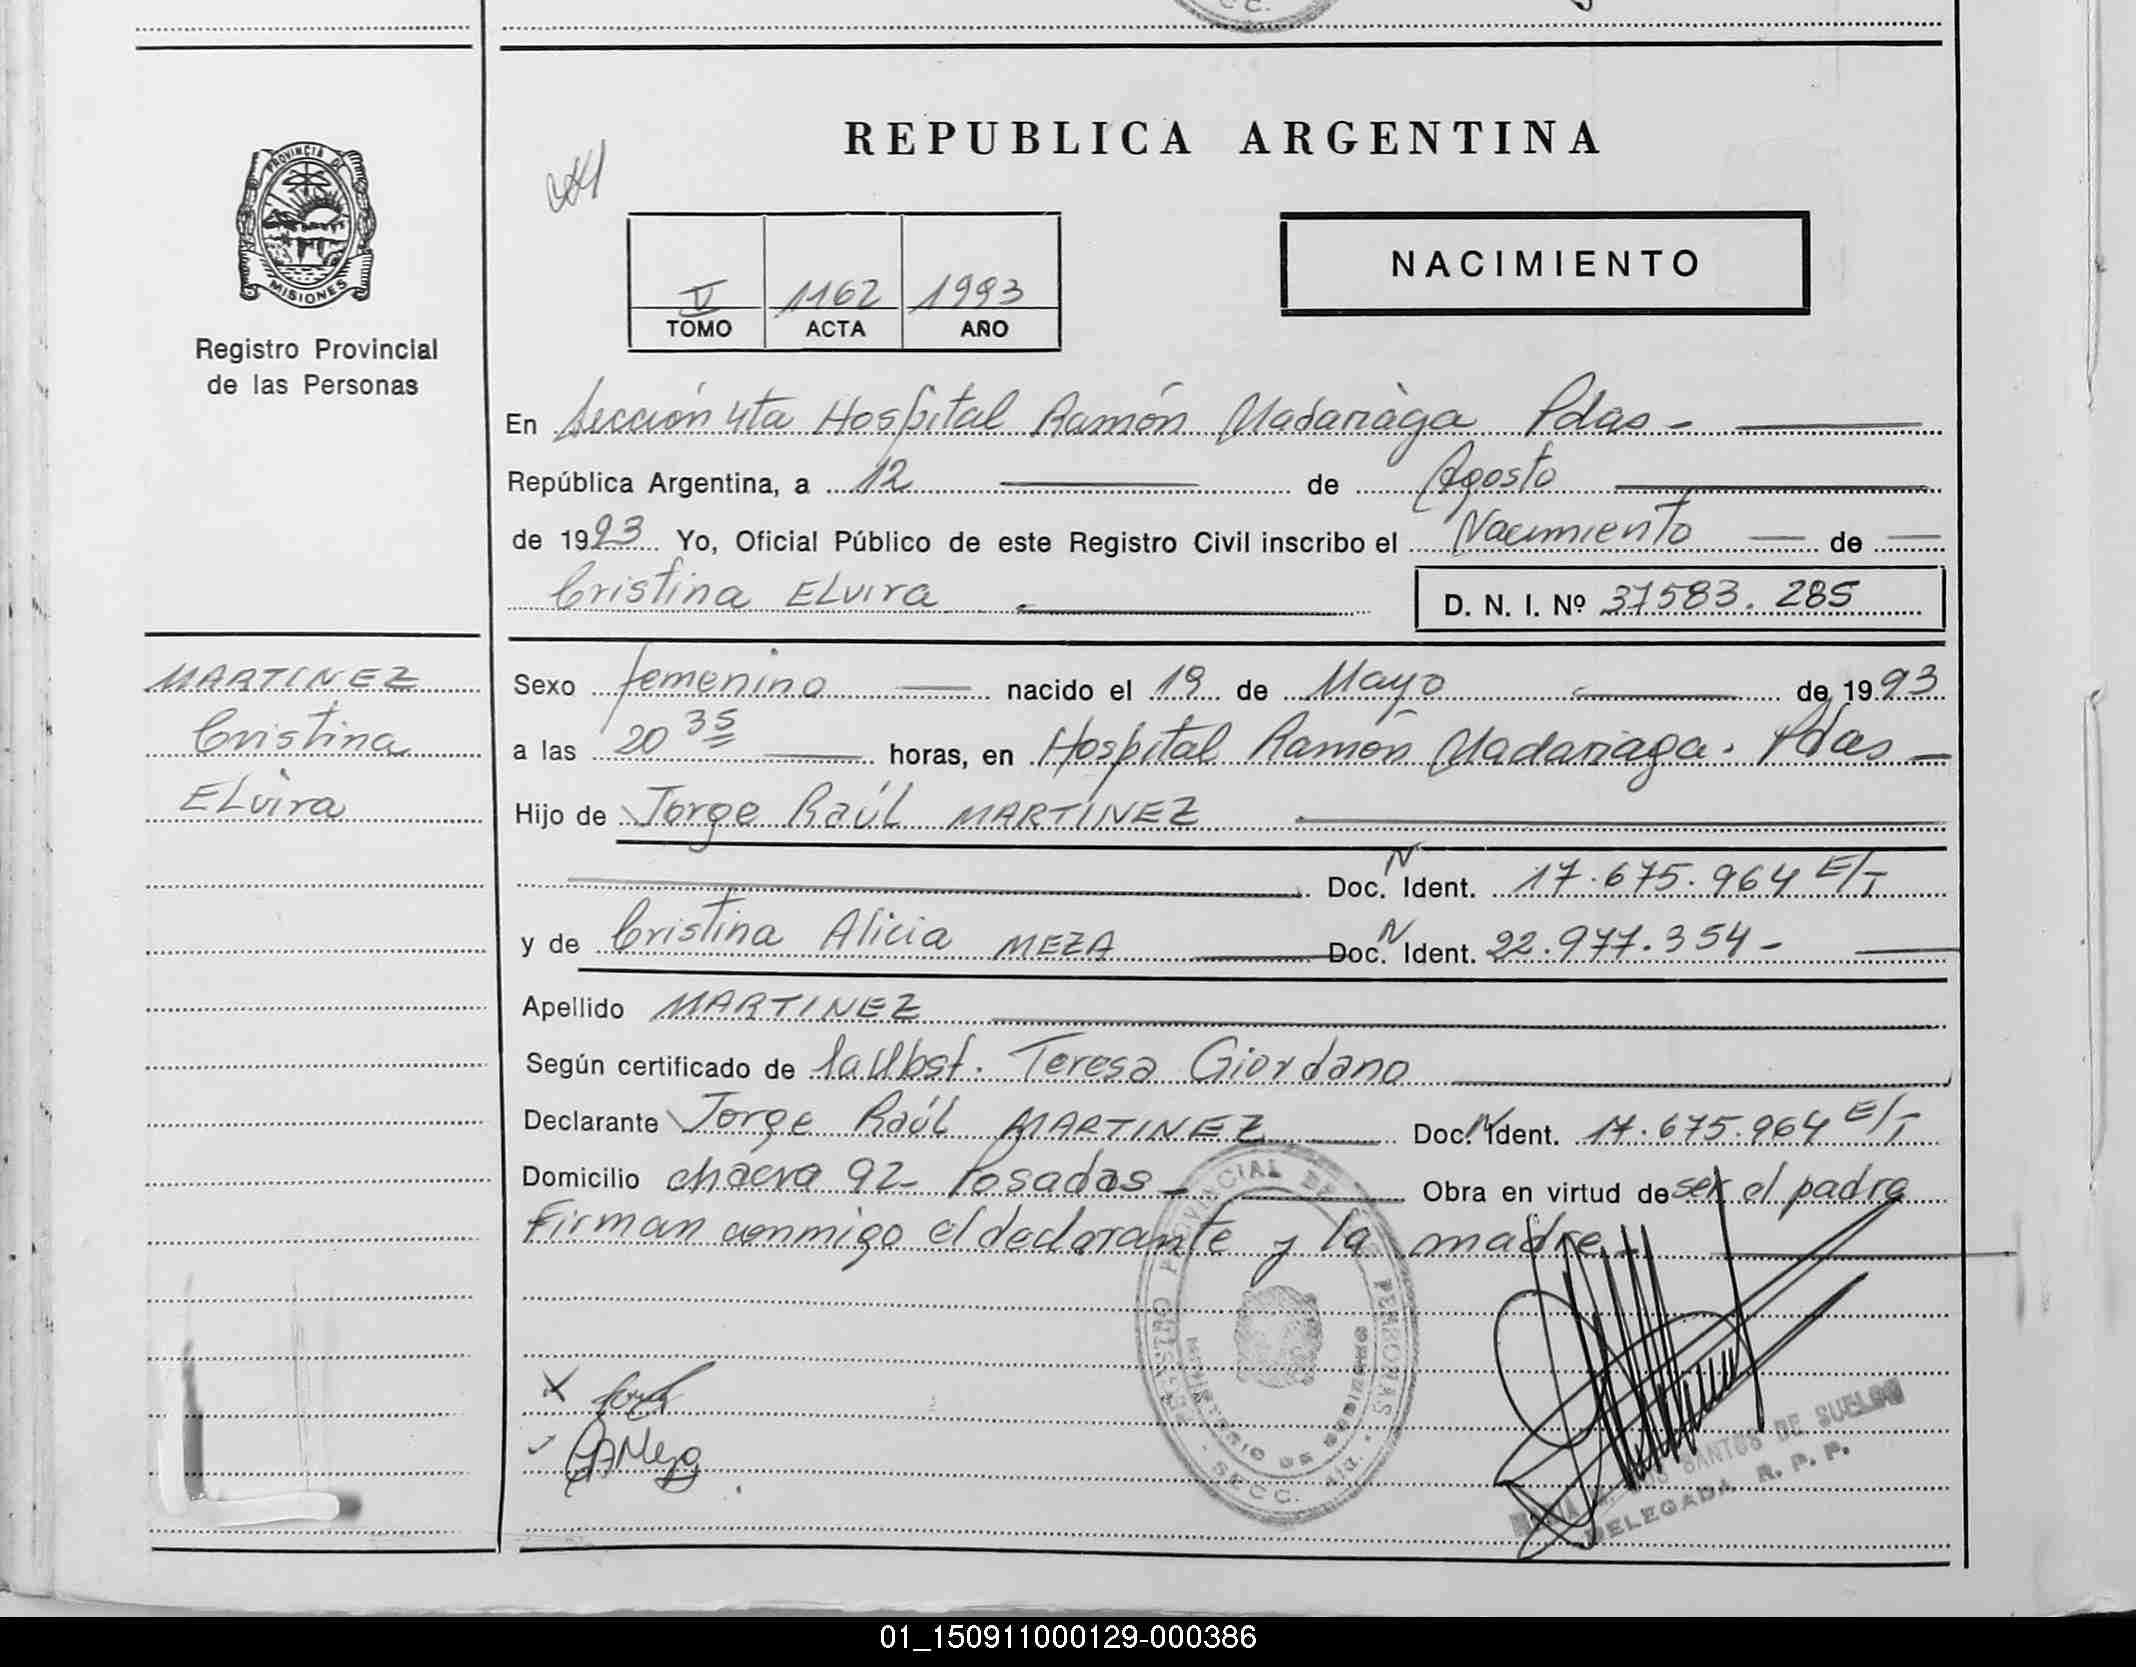 REPUBLICA ARGENTINA
PROVINCIA DE
MISIONES
Registro Provincial
de las Personas
V 1162 1993
TOMO ACTA AÑO
NACIMIENTO
En Sección 4ta Hospital Ramón Madariaga Pdas -
República Argentina, a 12 de Agosto
de 1993 Yo, Oficial Público de este Registro Civil inscribo el Nacimiento de
Cristina ELvira D. N. I. Nº 37583.285
MARTINEZ
Cristina
ELvira
Sexo femenino nacido el 19 de Mayo de 1993
a las 20 35 horas, en Hospital Ramón Madariaga. Pdas -
Hijo de Jorge Raúl MARTINEZ
Doc. N Ident. 17.675.964 E/T
y de Cristina Alicia MEZA Doc. N Ident. 22.977.354 -
Apellido MARTINEZ
Según certificado de la Obst. Teresa Giordano
Declarante Jorge Raúl MARTINEZ Doc. N Ident. 17.675.964 E/T
Domicilio chacra 92- Posadas - Obra en virtud de ser el padre
Firman conmigo el declarante y la madre -
REGISTRO PROVINCIAL DE PERSONAS
MINISTERIO DE GOBIERNO
SECC. 4ta.
CAMeza
SANTOS DE SUELDO
DELEGADA R. P. P.
01_150911000129-000386